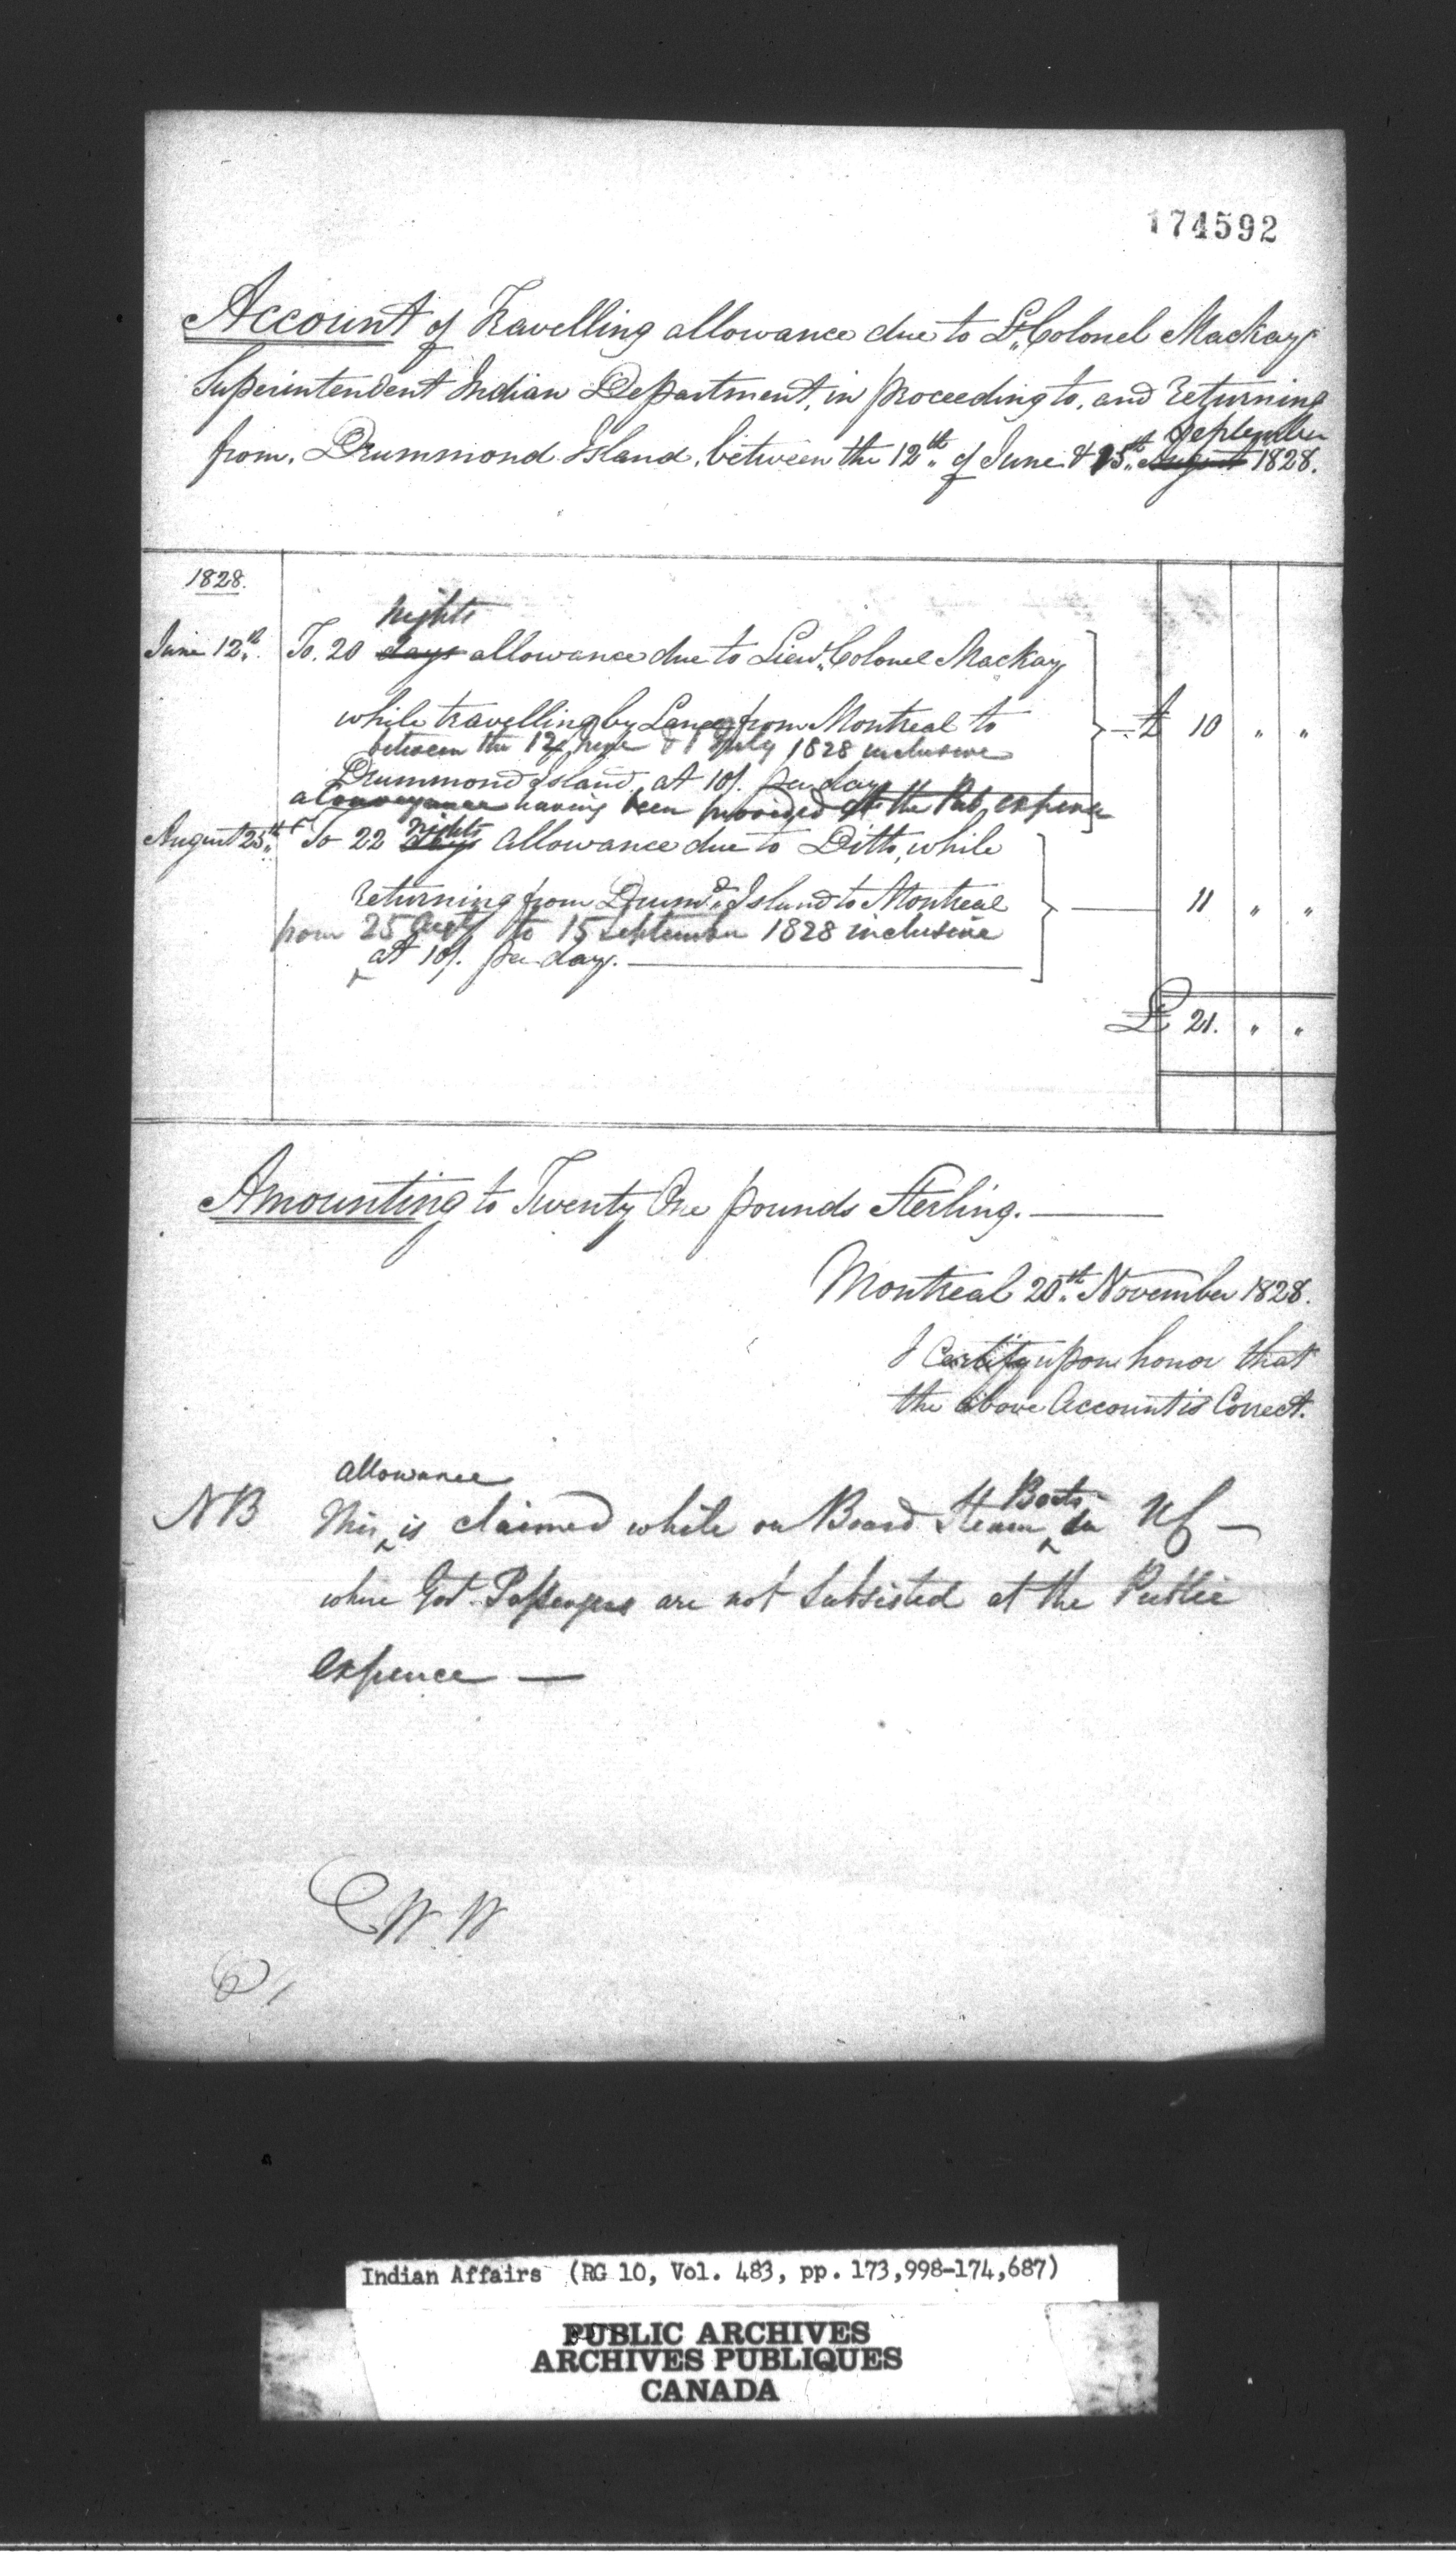 174592
Account of Travelling allowance due to Lt. Colonel Mackay
Superintendent Indian Department, in proceeding to, and returning
September
from, Drummond Island, between the 12th of June & 15th August 1828.
1828.
nights
June 12th. To. 20 days allowance due to Lieut. Colonel Mackay
while travelling by Land from Montreal to £ 10 " "
between the 12 June & 1 July 1828 inclusive
Drummond Island, at 10/. per day
a Conveyance having been provided at the Pub. expence
nights
August 25th To 22 days allowance due to Ditto, while
returning from Drumd. Island to Montreal 11 " "
from 25 Augt to 15 September 1828 inclusive
at 10/. per day.
£ 21. " "
Amounting to Twenty One pounds Sterling.
Montreal 20th. November 1828.
I Certify upon honor that
the above Account is Correct.
allowance
NB This is claimed while on Board Steam Boats in
where Got Passengers are not Subsisted at the Public
expence —
C W W
Indian Affairs (RG 10, Vol. 483, pp. 173,998-174,687)
PUBLIC ARCHIVES
ARCHIVES PUBLIQUES
CANADA